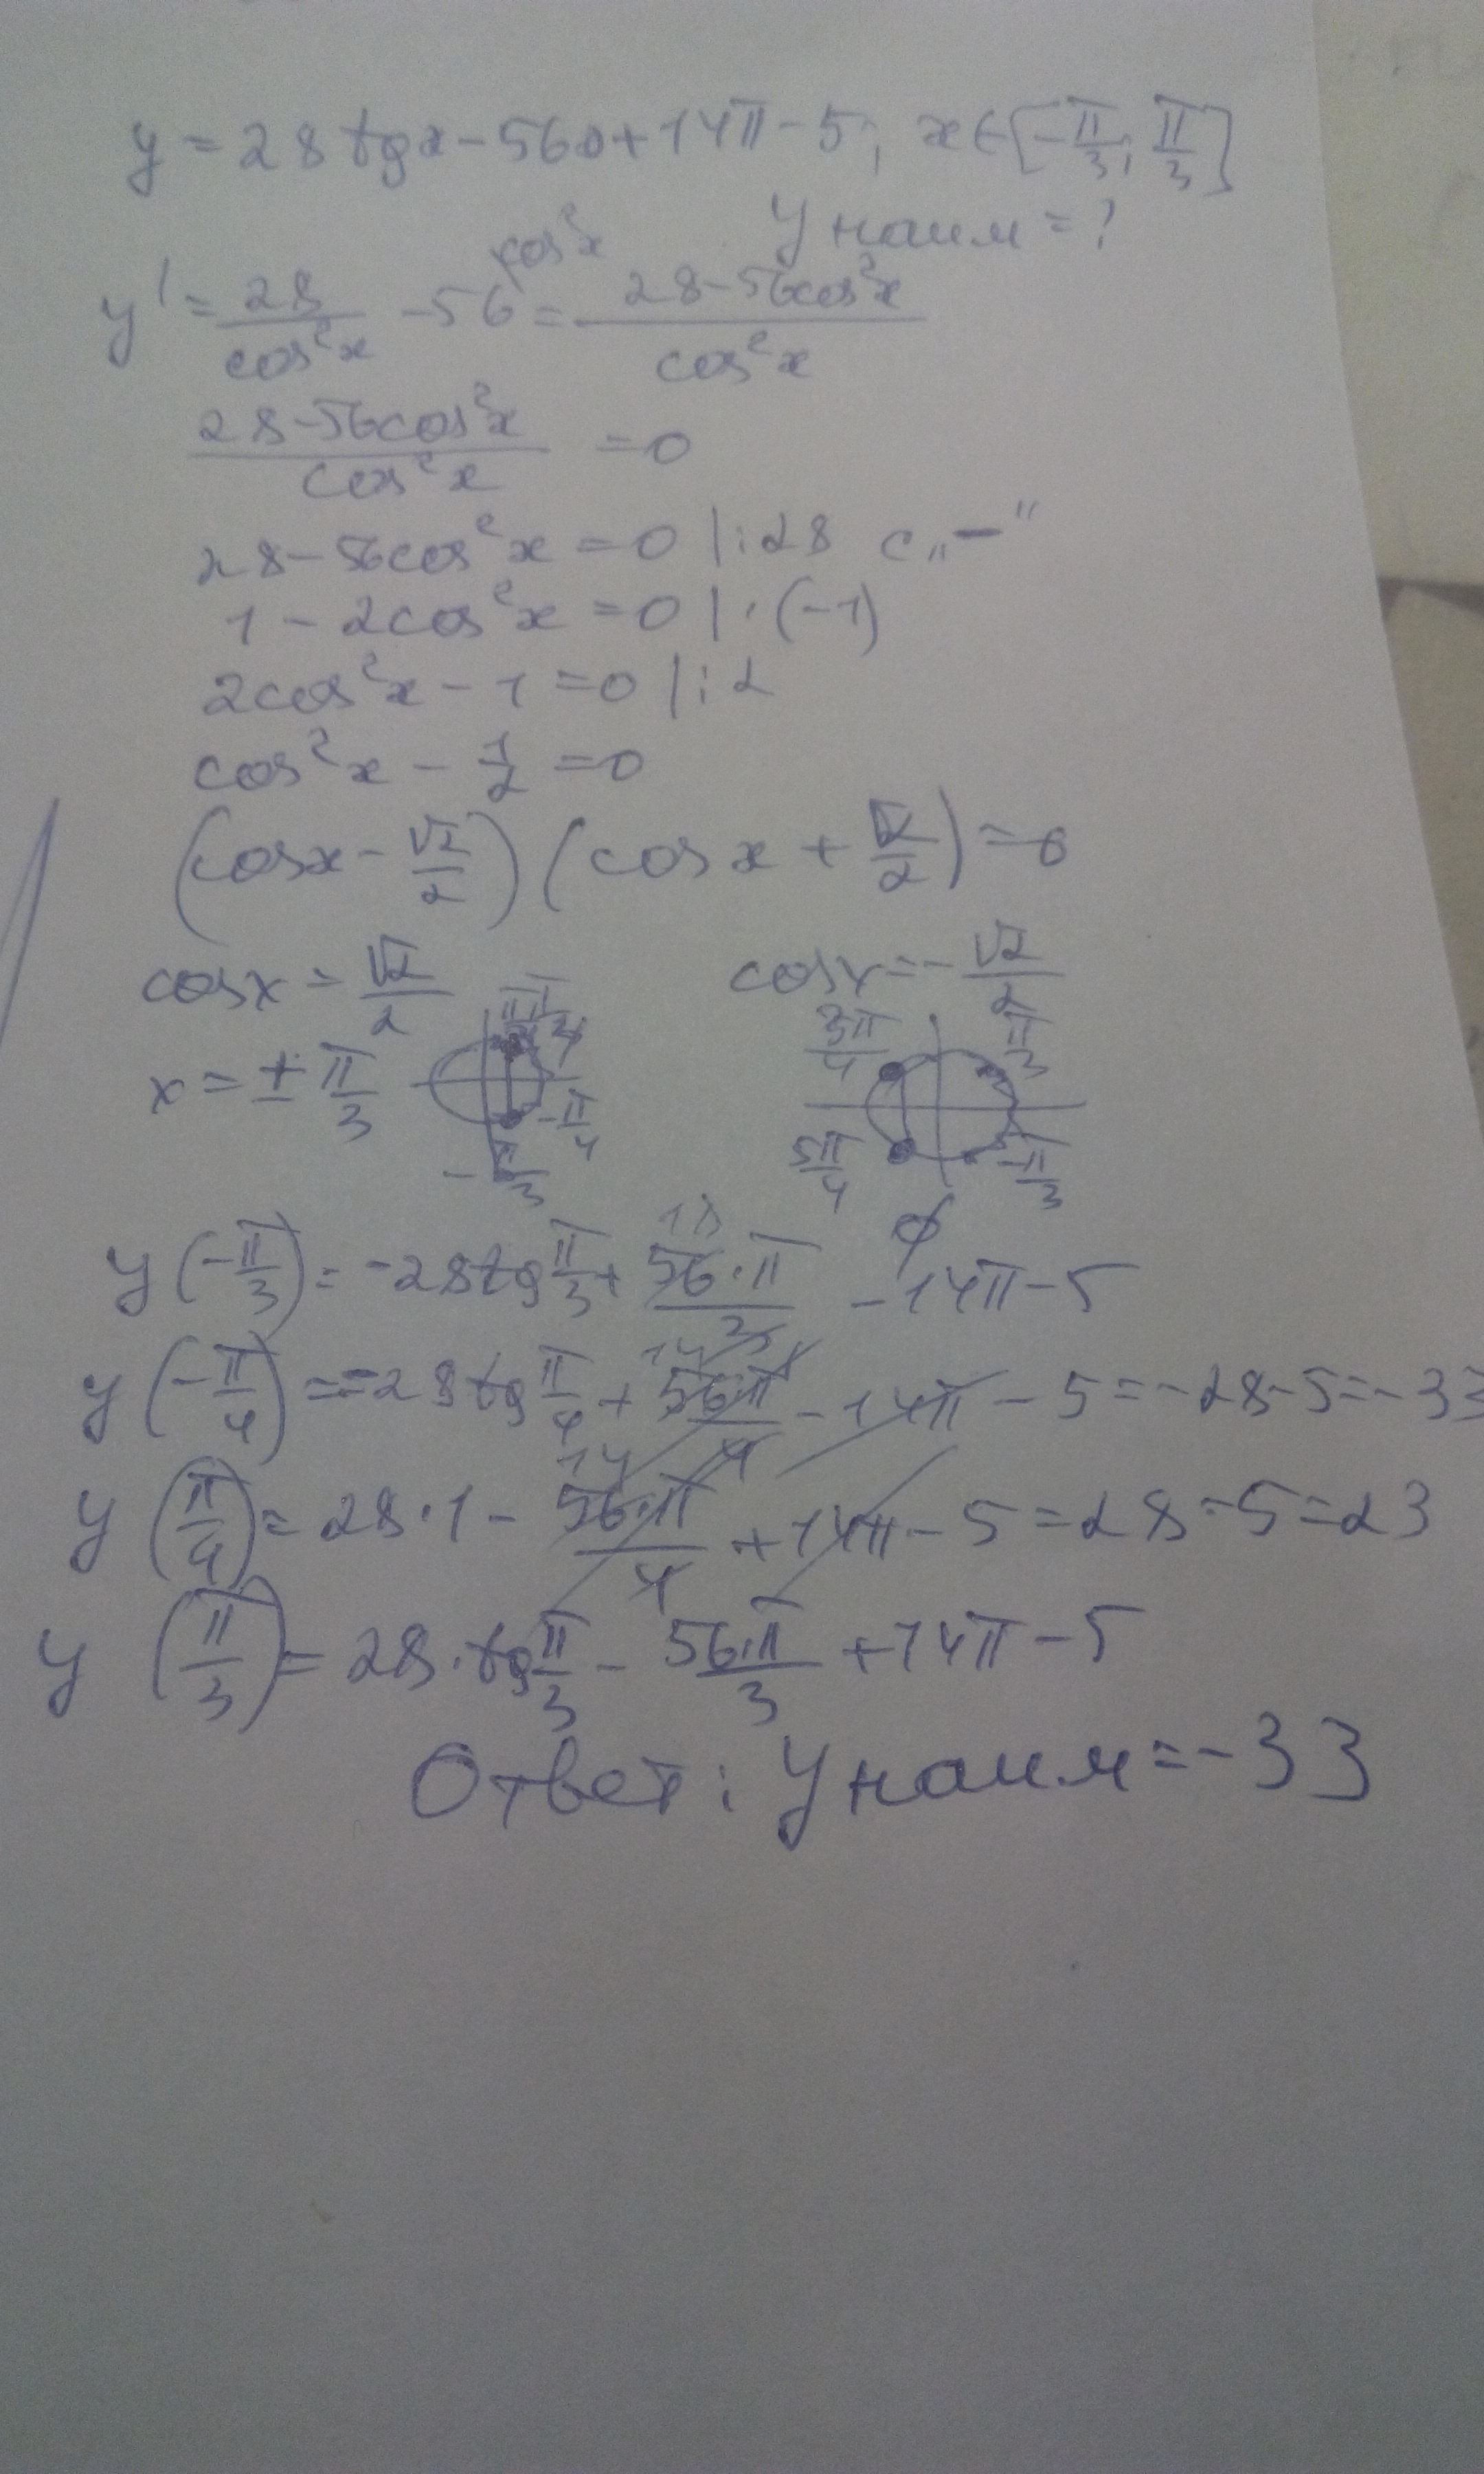 y = 28 tgx - 56x + 14π - 5; x ∈ [-π/3; π/3]
y наим = ?
y' = 28/cos²x - 56 = (28 - 56cos²x)/cos²x
cos²x
(28 - 56cos²x)/cos²x = 0
28 - 56cos²x = 0 | :28 с „—"
1 - 2cos²x = 0 | · (-1)
2cos²x - 1 = 0 | : 2
cos²x - 1/2 = 0
(cosx - √2/2) (cos x + √2/2) = 0
cosx = √2/2 cosx = - √2/2
x = ± π/3
-π/4
-π/3
3π/4 π/3
5π/4 -π/3
∅
y(-π/3) = -28tg π/3 + 56·π/3 - 14π - 5
y(-π/4) = -28 tg π/4 + 56·π/4 - 14π - 5 = -28 - 5 = -33
y(π/4) = 28 · 1 - 56·π/4 + 14π - 5 = 28 - 5 = 23
y(π/3) = 28 · tg π/3 - 56·π/3 + 14π - 5
Ответ: y наим = -33